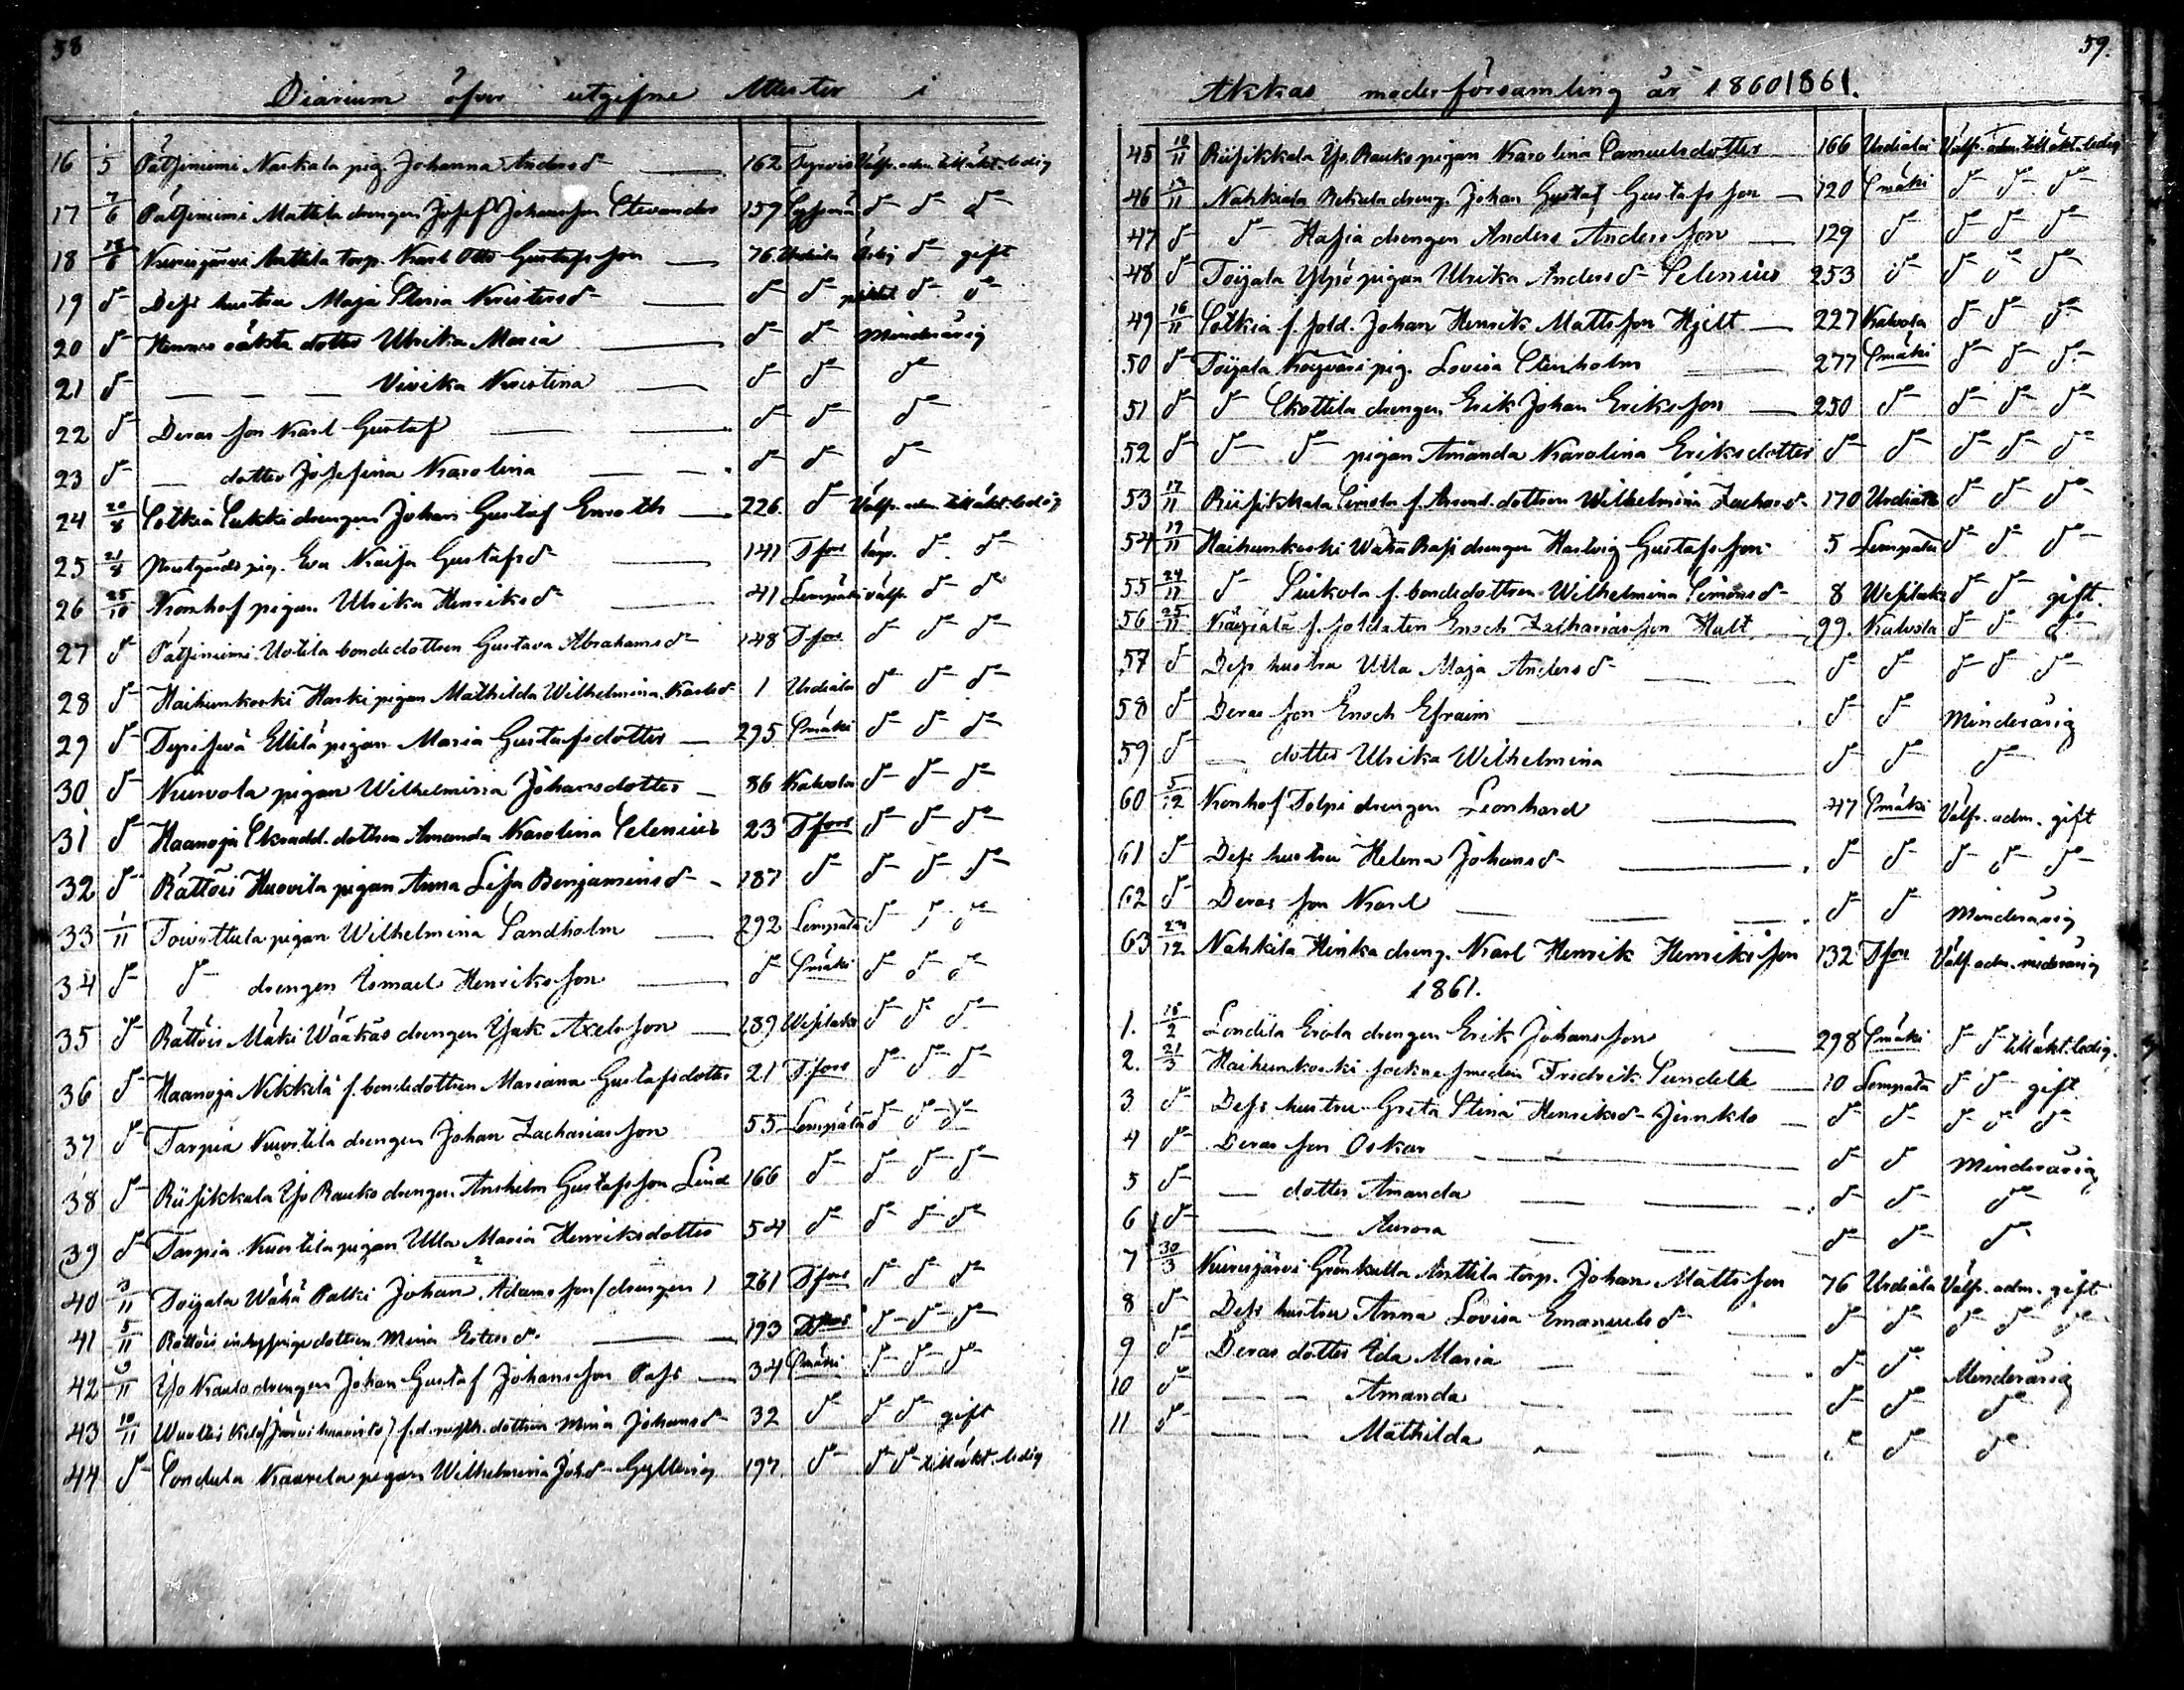 58
Diarium öfver utgifne Attester i
16 5 Pätsiniemi Naskala pig. Johanna Anders d- 162 Tyrvis Välfr. adm. till äkt. ledig
17 7/6 Pätsiniemi Mattila drengen Josef Johansson Stevander 157 d- d- d-
18 18/8 Kurisjärvi Anttila torp. Karl Otto Gustafsson 76 Urdiala d- gift
19 d- Dess hustru Maja Stina Kristers d- d- d- d- d-
20 d- Hennes oäkta dotter Ulrika Maria d- d- Minderårig
21 d- Vivika Kristina d- d- d-
22 d- Deras son Karl Gustaf d- d- d-
23 d- dotter Josefina Karolina d- d- d-
24 20/8 Sotkia Sukki drengen Johan Gustaf Enroth 226 d- Välfr. adm. till äkt. ledig
25 21/8 pig. Eva Kaisa Gustafs d- 141 Tfors d- d-
26 25/10 Kronhof pigan Ulrika Henriks d- 41 Lempälä välfr d- d-
27 d- Pätsiniemi Uotila bondedottren Gustava Abrahams d- 148 Tfors d- d- d-
28 d- Haihunkoski Harki pigan Mathilda Wilhelmina Karls d- 1 Urdiala d- d- d-
29 d- Terisjevä Ellilä pigan Maria Gustafsdotter 295 Smäki d- d- d-
30 d- Kurvola pigan Wilhelmina Johansdotter 86 Kalvola d- d- d-
31 d- Haanoja Skrädd. dottren Amanda Karolina Selenius 23 Tfors d- d- d-
32 d- Rättöis Huovila pigan Anna Lisa Benjamins d- 187 d- d- d- d-
33 1/11 Toivottula pigan Wilhelmina Sandholm 292 Lempälä d- d- d-
34 d- d- drengen Ismael Henriksson d- Smäki d- d- d-
35 d- Rättöis Mäki Wääkäs drengen Isak Axelsson 189 Wesilaks d- d- d-
36 d- Haanoja Nikkilä f. bondedottren Mariana Gustafsdotter 21 Tfors d- d- d-
37 d- Tarpia Kuortila drengen Johan Zachariasson 55 Lempälä d- d- d-
38 d- Riisikkala Yso Rauko drengen Anshelm Gustafsson Lind 166 d- d- d- d-
39 d- Tarpia Kuortila pigan Ulla Maria Henriksdotter 54 d- d- d- d-
40 3/11 Toijala Wähä Palki Johan Adamsson (drengen) 261 Tfors d- d- d-
41 5/11 Rättöis inhyssinge dottren Mina d- 193 d- d- d-
42 9/11 Yso Kauto drengen Johan Gustaf Johansson 34 Smäki d- d- d-
43 10/11 dottren Mina Johans d- 32 d- d- d- gift
44 d- Sondula Kaurela pigan Wilhelmina Joh. d- Gylling 197 d- d- d- till äkt. ledig
59.
Akkas moderförsamling år 1860 1861.
45 10/11 Riisikkala Yso Rauko pigan Karolina Samuelsdotter 166 Urdiala Välfr. adm. till äkt. ledig
46 13/11 Nahkiala Nikula dreng. Johan Gustaf Gustafsson 120 Smäki d- d- d-
47 d- d- Hasia drengen Anders Andersson 129 d- d- d- d-
48 d- Toijala Ylpö pigan Ulrika Anders d- Selenius 253 d- d- d- d-
49 16/11 Sotkia f. sold. Johan Henrik Mattsson Hjelt 227 Kalvola d- d- d-
50 d- Toijala pig. Lovisa Stenholm 277 Smäki d- d- d-
51 d- d- Skottila drengen Erik Johan Eriksson 250 d- d- d- d-
52 d- d- d- pigan Amanda Karolina Eriksdotter d- d- d- d- d-
53 17/11 Riisikkala Simola f. dottren Wilhelmina Zachar. d- 170 Urdiala d- d- d-
54 19/11 Haihunkoski Wähä Rasi drengen Hartvig Gustafsson 5 Lempälä d- d- d-
55 24/11 d- Suikola f. bondedottren Wilhelmina Simons d- 8 Wesilaks d- d- gift.
56 25/11 f. soldaten Enoch Zachariasson Hult 99. Kalvola d- d- d-
57 d- Dess hustru Ulla Maja Anders d- d- d- d- d- d-
58 d- Deras son Enoch Efraim d- d- Minderårig
59 d- dotter Ulrika Wilhelmina d- d- d-
60 5/12 Kronhof Tolpi drengen Leonhard 47 Smäki Välfr. adm. gift
61 d- Dess hustru Helena Johans d- d- d- d- d- d-
62 d- Deras son Karl d- d- Minderårig
63 29/12 Nahkila Heinka dreng. Karl Henrik Henriksson 132 Tfors Välf. adm. minderårig
1861.
1. 18/2 Londila Erola drengen Erik Johansson 298 Smäki d- d- till äkt. ledig.
2. 21/3 Haihunkoski sockne smeden Fredrik Sundell 10 Lempälä d- d- gift
3 d- Dess hustru Greta Stina Henriks d- d- d- d- d- d-
4 d- Deras son Oskar d- d- Minderårig
5 d- dotter Amanda d- d- d-
6 d- Aurora d- d- d-
7 30/3 Kurisjärvi Gränkulla Anttila torp. Johan Mattsson 76 Urdiala Välfr. adm. gift
8 d- Dess hustru Anna Lovisa Emanuels d- d- d- d- d- d-
9 d- Deras dotter Ida Maria d- d- Minderårig
10 d- Amanda d- d- d-
11 d- Mathilda d- d- d-